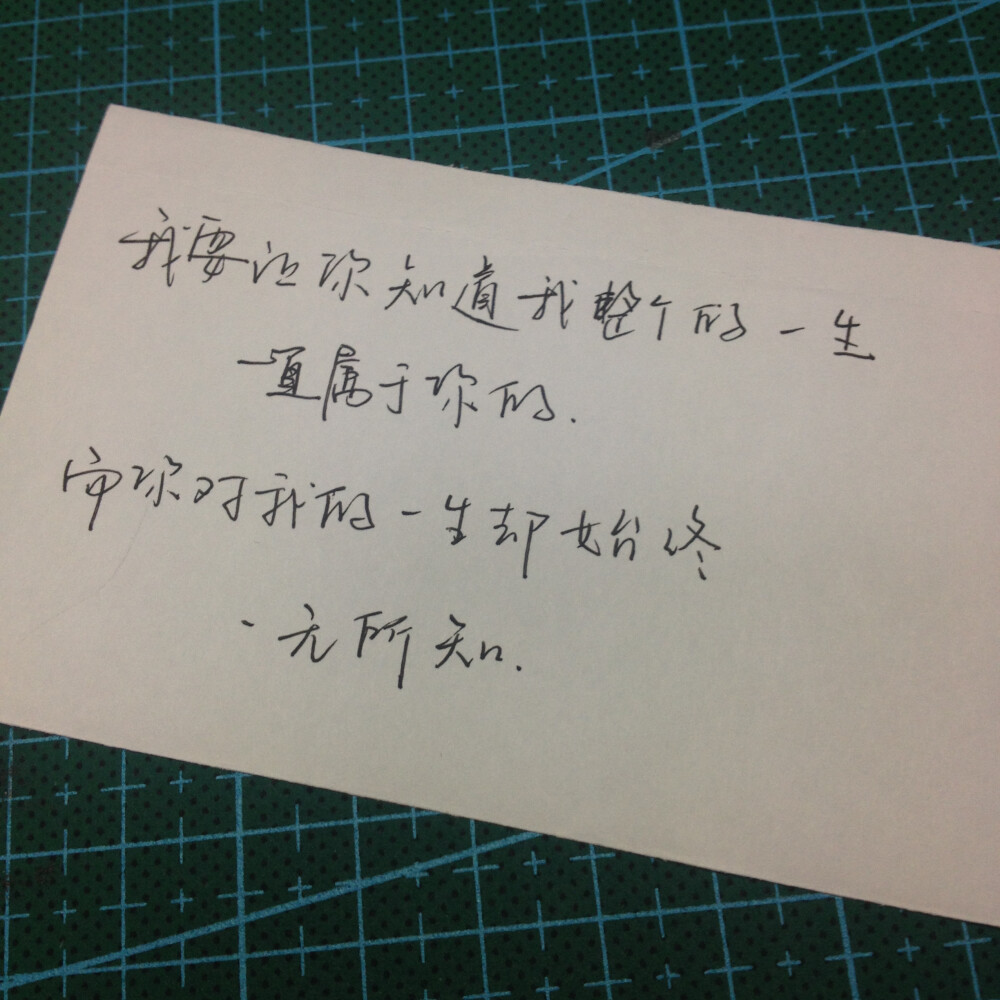 我要让你知道我整个的一生
一直属于你的.
而你对我的一生却始终
一无所知.